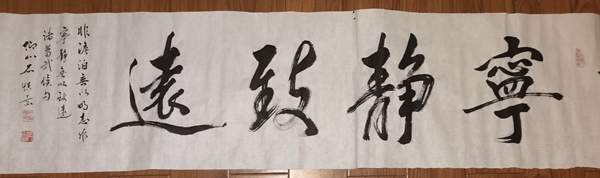 寧靜致遠
非澹泊無以明志非
寧靜無以致遠
諸葛武侯句